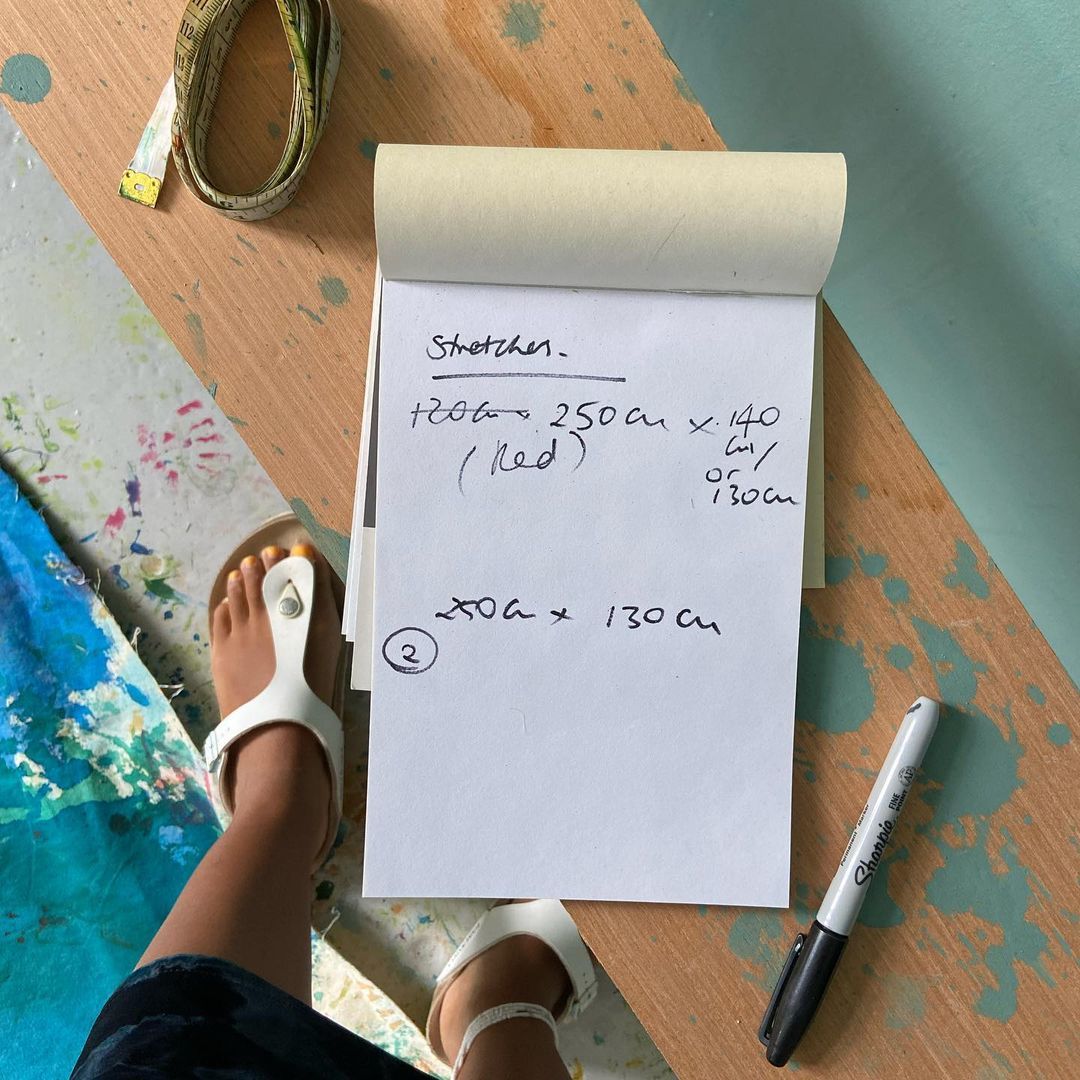 Stretches.
120cm 250cm x 140
cm/
(Red)
or
130cm
250cm x 130cm
2
Sharpie
FINE POINT
AP
Permanent Marker